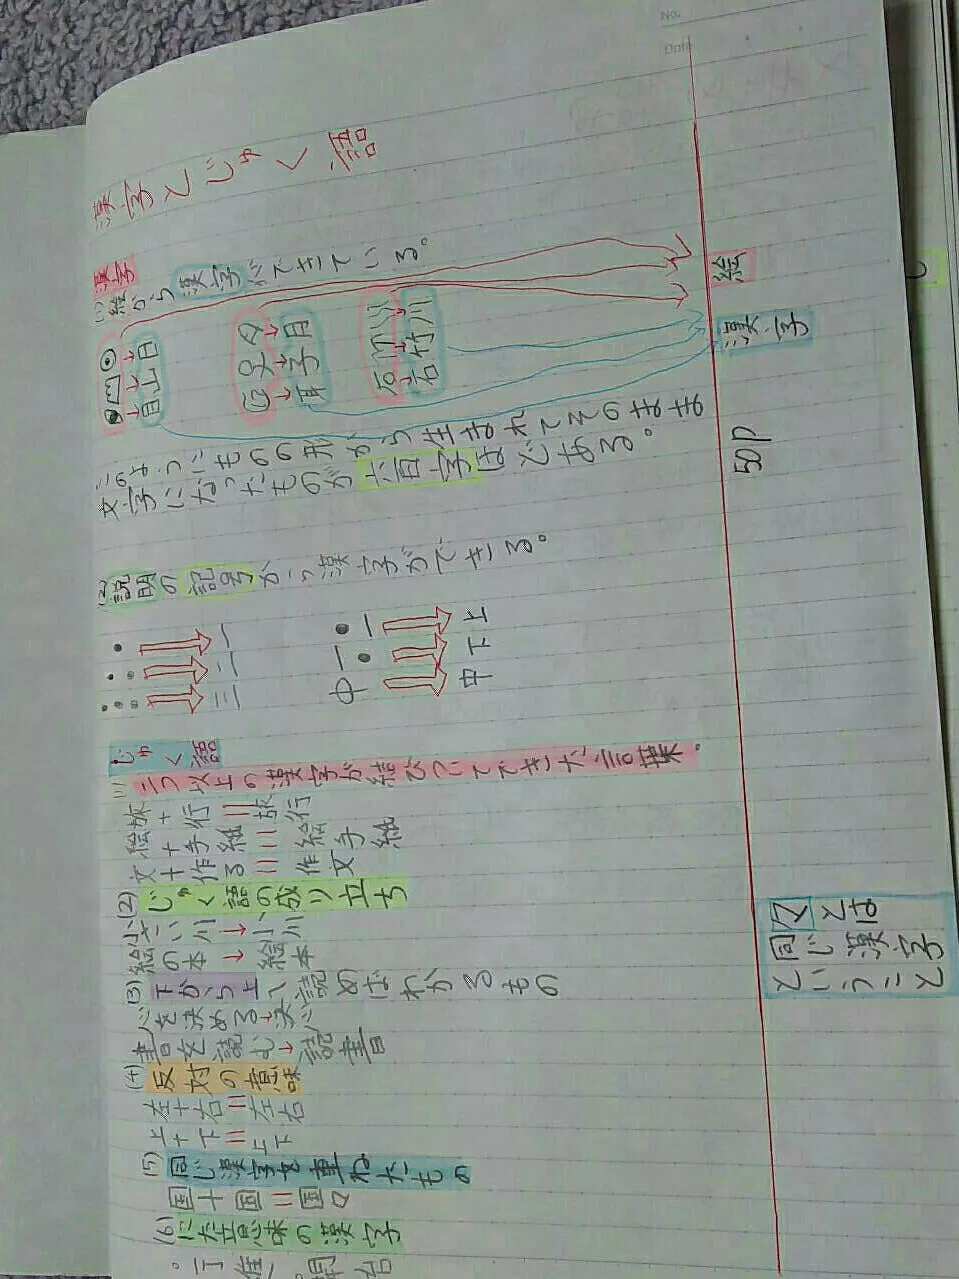 No.
Date
漢字とじゅく語
漢字
(1)絵から漢字ができている。
日 山 目
月 子 耳
川 竹 石
絵
漢字
このようにものの形から生まれてそのまま
文字になったものが六百字ほどである。
50P
(2)説明の記号から漢字ができる。
一 二 三
上 下 中
じゅく語
(1)二つ以上の漢字が結びついてできた言葉。
旅+行=旅行
絵+手紙=絵手紙
文+作る=作文
(2)じゅく語の成り立ち
小さい川→小川
絵の本→絵本
(3)下から上へ読めばわかるもの
心を決める→決心
書を読む→読書
(4)反対の意味
左+右=左右
上+下=上下
(5)同じ漢字を重ねたもの
国+国=国々
(6)にた意味の漢字
々とは
同じ漢字
ということ